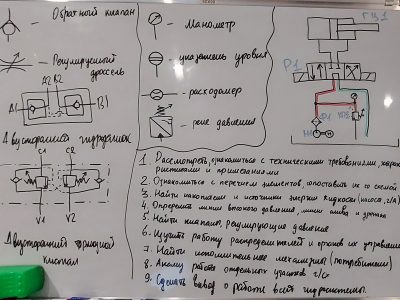 Обратный клапан
Регулируемый
дроссель
A2 B2
A1
B1
Двусторонний гидрозамок
C1
C2
V1
V2
Двусторонний тормозной
клапан
- Манометр
- указатель уровня
- расходомер
- реле давления
ГЦ1
P1
1. Рассмотреть, ознакомиться с техническими требованиями,
и примечаниями
2. Ознакомиться с перечнем элементов, сопоставить их со схемой
3. Найти и источники энергии жидкости (насос, г/а)
4. Определить линии высокого давления, линии слива и дренажа
5. Найти клапаны, регулирующие давление
6. Изучить работу распределителей и органов их управления
7. Найти исполнительные механизмы (потребители)
8. Анализ работы отдельных участков г/с
9. Сделать вывод о работе всей гидросистемы.